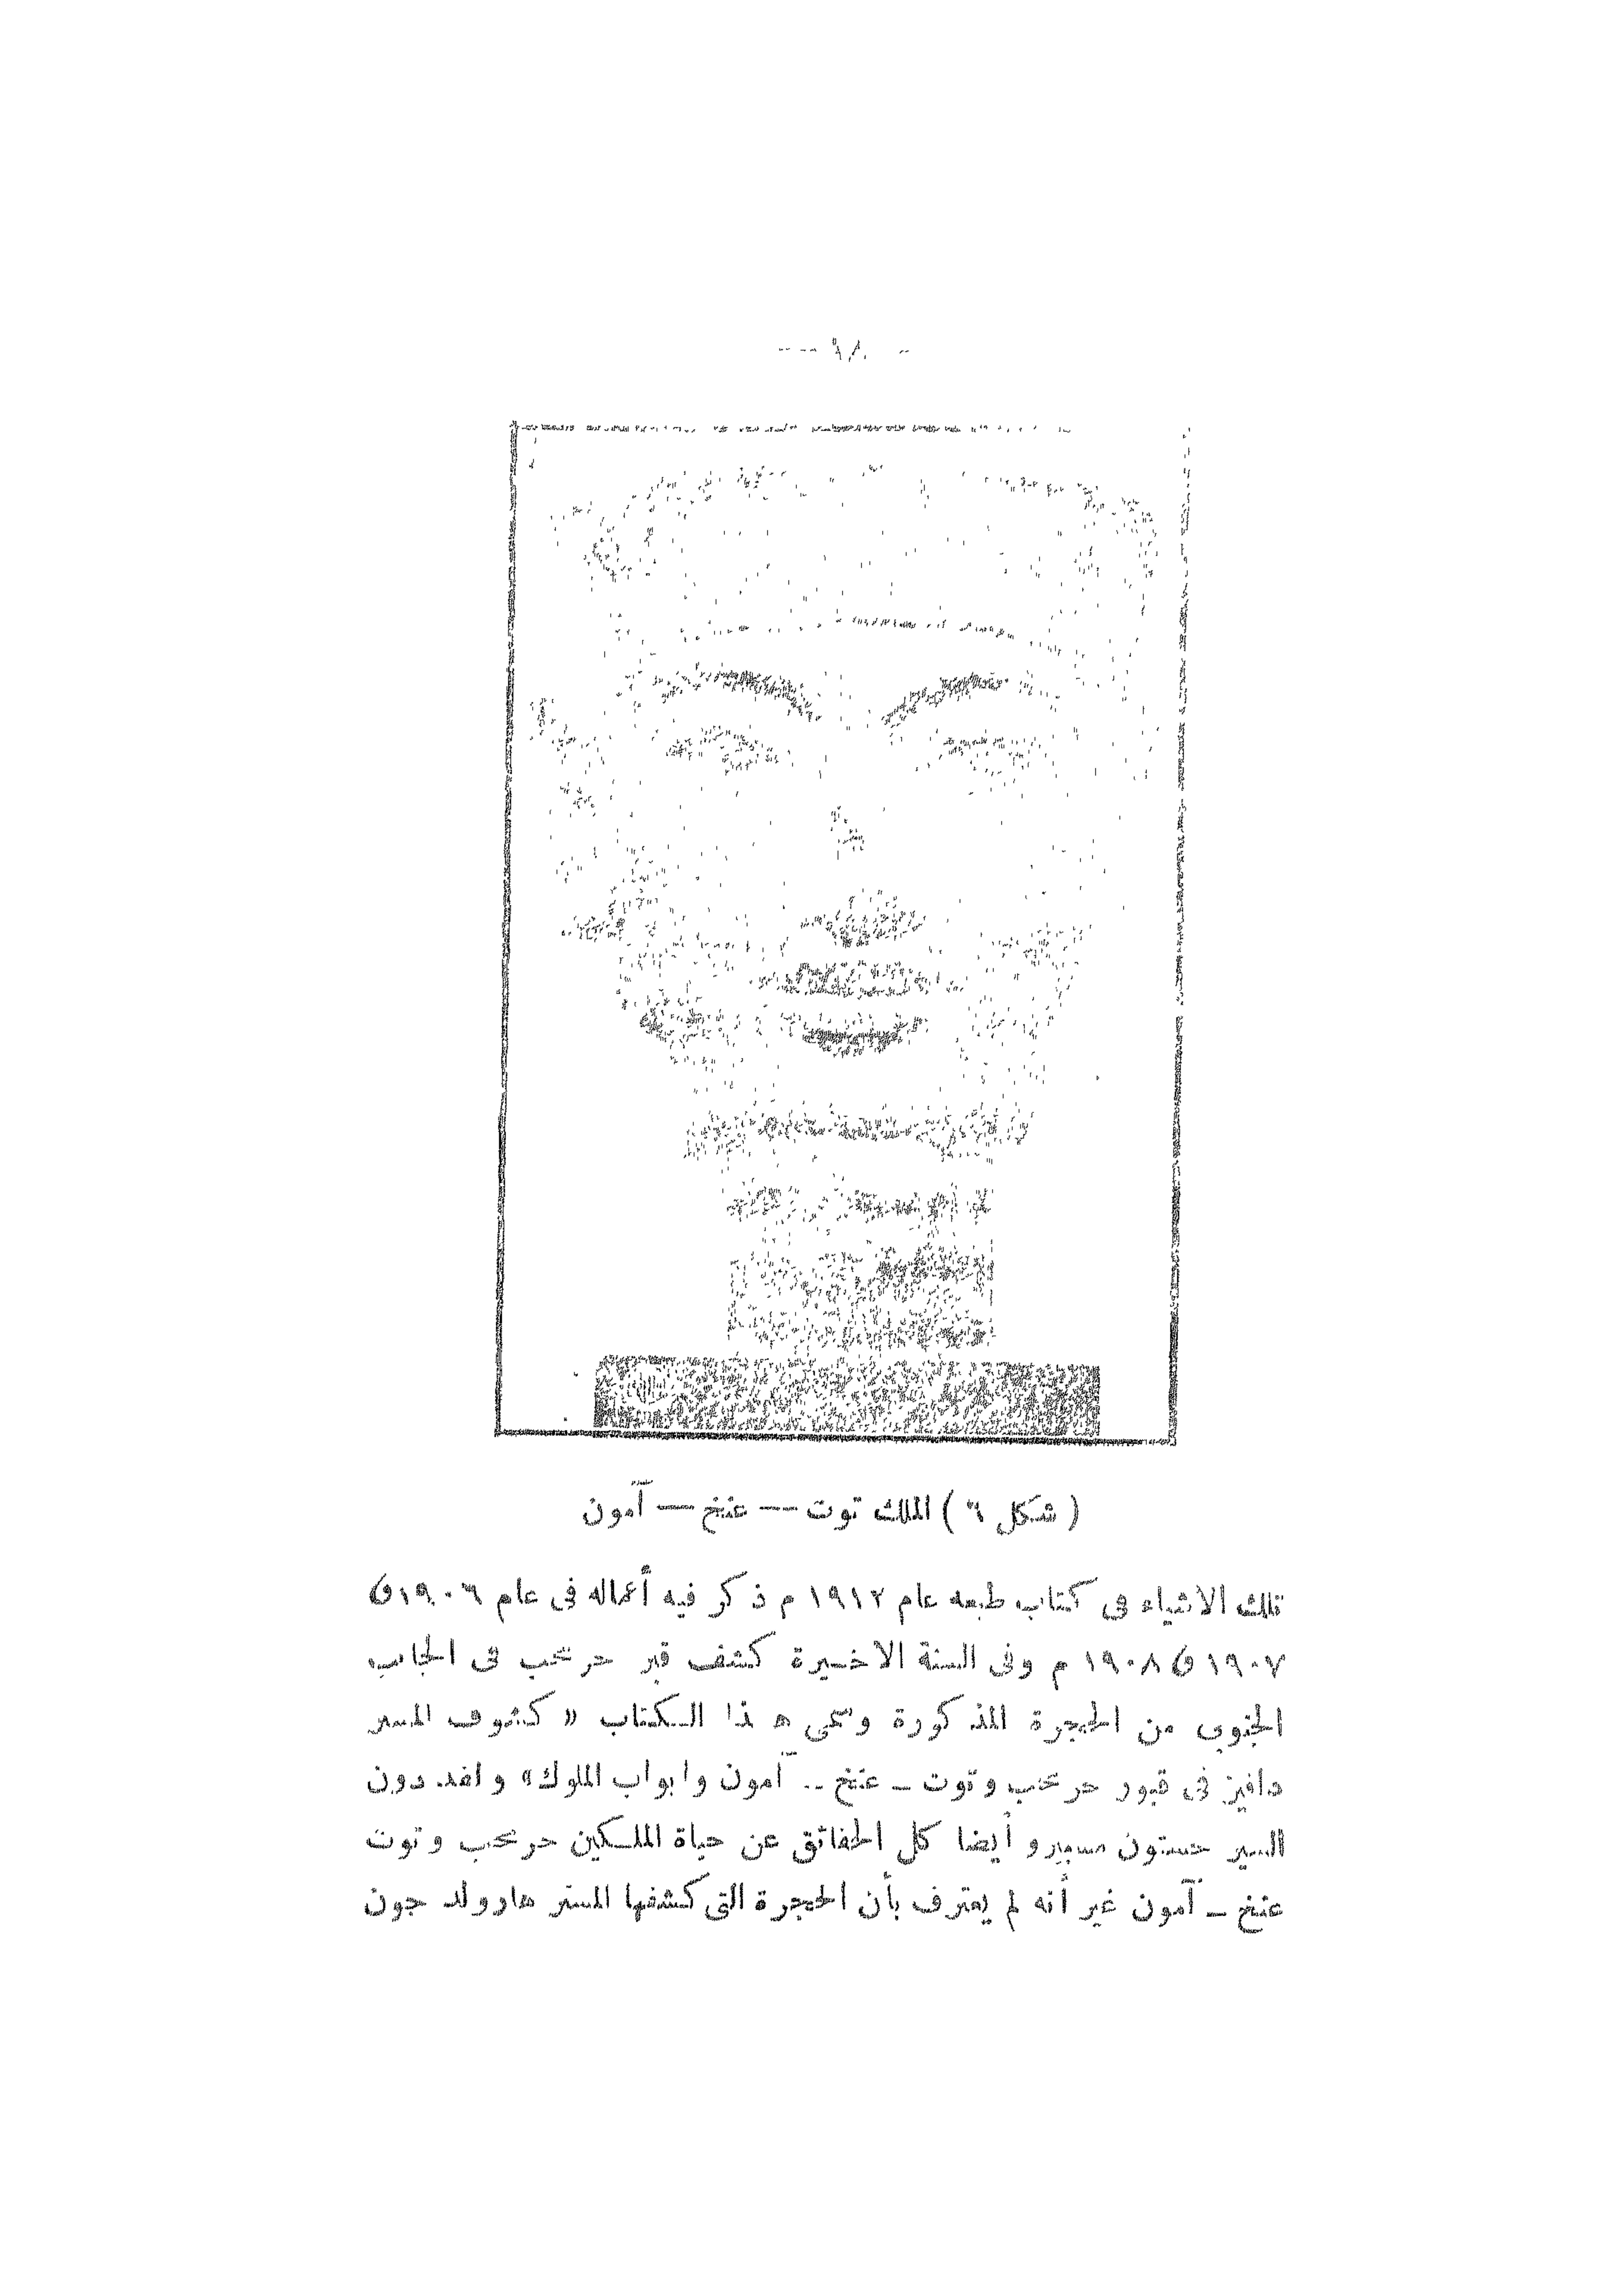 — ٩٨ —
( شكل ٦ ) الملك توت — عنخ — آمون
تلك الاشياء في كتاب طبعه عام ١٩١٢ م ذكر فيه أعماله في عام ١٩٠٦ و
١٩٠٧ و ١٩٠٨ م وفى السنة الاخيرة كشف قبر حرمحب فى الجانب
الجنوبى من الحجرة المذكورة وسمى هذا الكتاب « كشوف المستر
دافيز فى قبور حرمحب وتوت — عنخ — آمون وابواب الملوك » ولقد دون
السير جستون مسبيرو أيضا كل الحقائق عن حياة الملكين حرمحب وتوت
عنخ — آمون غير أنه لم يعترف بأن الحجرة التى كشفها المستر هارولد جون